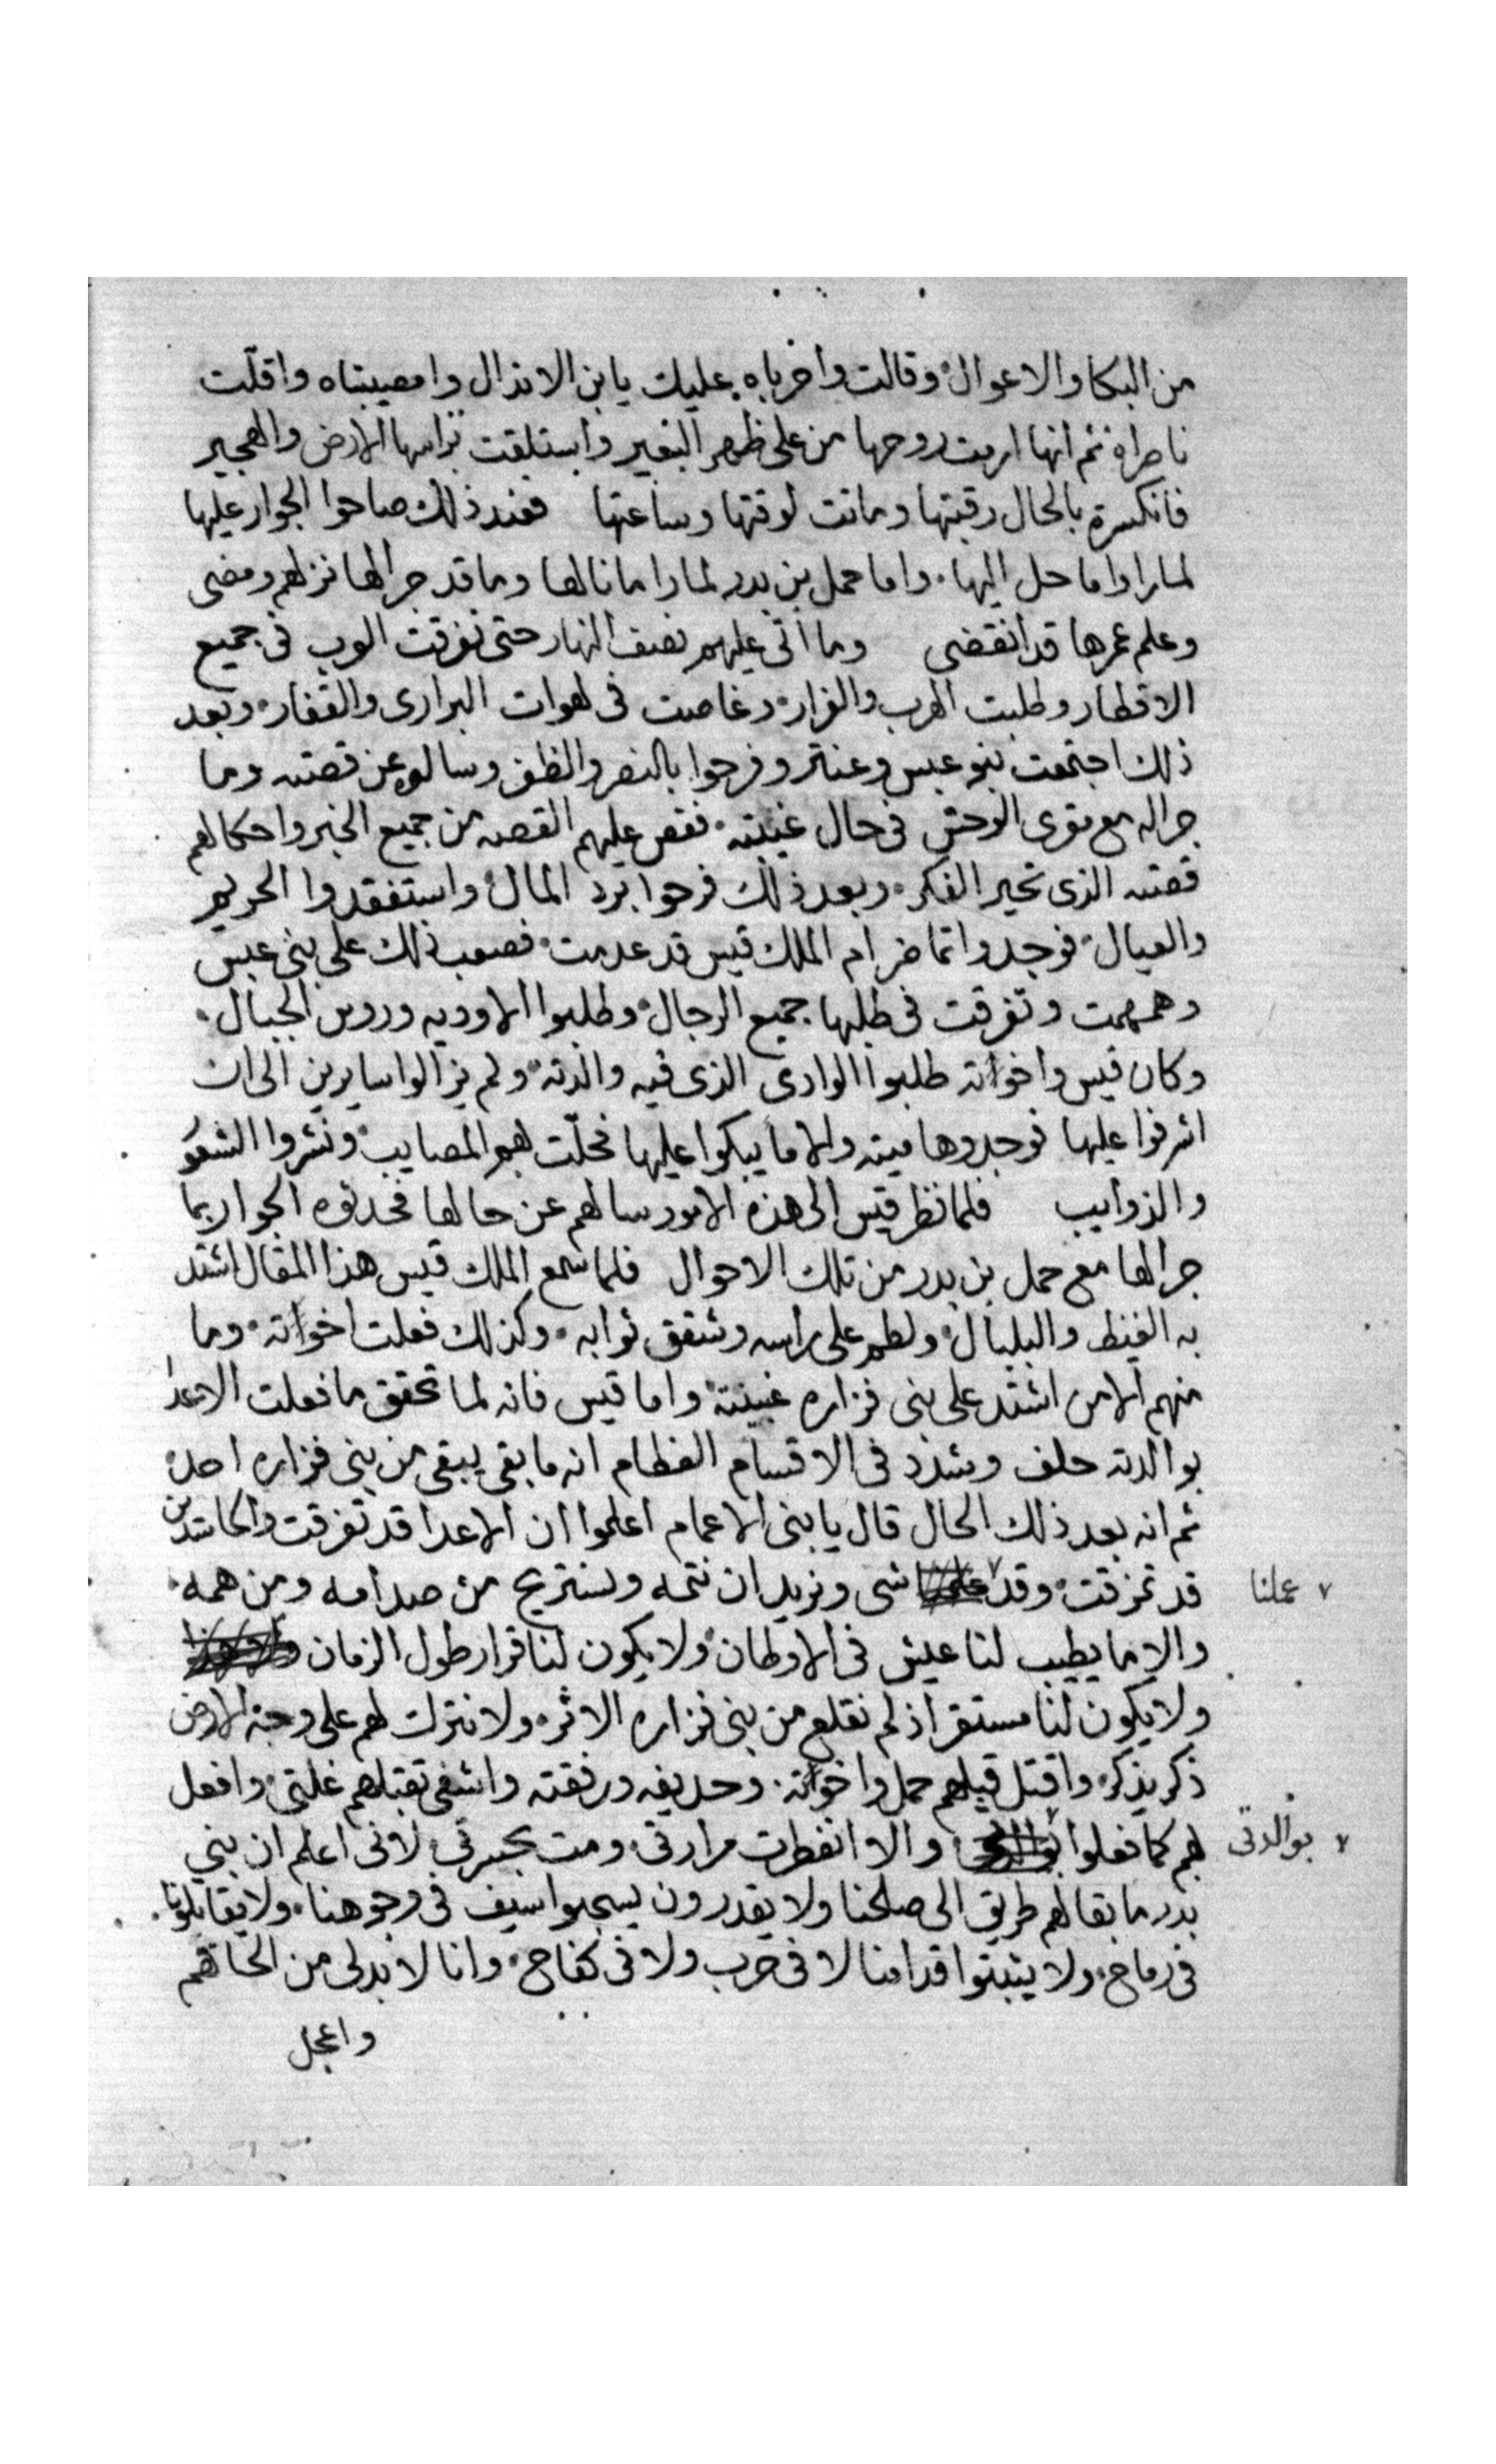 من البكا والاعوال وقالت واخرباه عليك يابن الاندال وامصيبتاه واقلّت
ناصراه ثم انها ارمت روحها من على ظهر البعير واستلقت براسها الارض والهجير
فانكسرة بالحال رقبتها وماتت لوقتها وساعتها فعند ذلك صاحوا الجوار عليها
لما راوا ما حل اليها واما حمل بن بدر لما را ما نالها وما قد جرا لها نزلهم ومضى
وعلم عمرها قد انقضى وما اتى عليهم نصف النهار حتى تفرقت العرب فى جميع
الاقطار وطلبت الهرب والفرار وغاصت فى لهوات البرارى والقفار وبعد
ذلك اجتمعت بنو عبس وعنتر وفرحوا بالنصر والظفر وسالوه عن قصته وما
جراله مع مقرى الوحش فى حال غيبته فقص عليهم القصه من جميع الخبر واحكالهم
قصته الذى تحير الفكر وبعد ذلك فرحوا برد المال واستفقدوا الحريم
والعيال فوجدوا تماضر ام الملك قيس قد عدمت فصعب ذلك على بنى عبس
وهمهمت وتفرقت فى طلبها جميع الرجال وطلبوا الاوديه وروس الجبال
وكان قيس واخواته طلبوا الوادى الذى فيه والدته ولم يزالوا سايرين الى ان
اشرفوا عليها فوجدوها ميته والاما يبكوا عليها فحلّت بهم المصايب ونشروا الشعور
والذوايب فلما نظر قيس الى هذه الامور سالهم عن حالها فحدثوه الجوار بما
جرالها مع حمل بن بدر من تلك الاحوال فلما سمع الملك قيس هذا المقال اشتد
به الغيظ والبلبال ولطم على راسه وشقق ثوابه وكذلك فعلت اخواته وما
منهم الا من اشتد على بنى فزاره غبينته واما قيس فانه لما تحقق ما فعلت الاعدا
بوالدته حلف وشدد فى الاقسام العظام انه ما بقى يبقى من بنى فزاره احد
ثم انه بعد ذلك الحال قال يا بنى الاعمام اعلموا ان الاعدا قد تفرقت والحاسدين
قد تمزقت وقد عملنا شى ونريد ان نتمه ونستريح من صدامه ومن همه
والا ما يطيب لنا عيش فى الاوطان ولا يكون لنا قرار طول الزمان
ولا يكون لنا مستقر اذ لم نقلع من بنى فزاره الاثر ولا نترك لهم على وجه الارض
ذكر يذكر واقتل قبلهم حمل واخواته وحديفه ورفقته واشفى بقتلهم غلتى وافعل
لهم كما فعلوا بوالدتى والا انفطرت مرارتى ومت بحسرتى لانى اعلم ان بني
بدر ما بقا لهم طريق الى صلحنا ولا يقدرون يسحبوا سيف فى وجوهنا ولا يقابلونا
فى رماح ولا يثبتوا قدامنا لا فى حرب ولا فى كفاح وانا لا بدلى من الحاقهم
واعجل